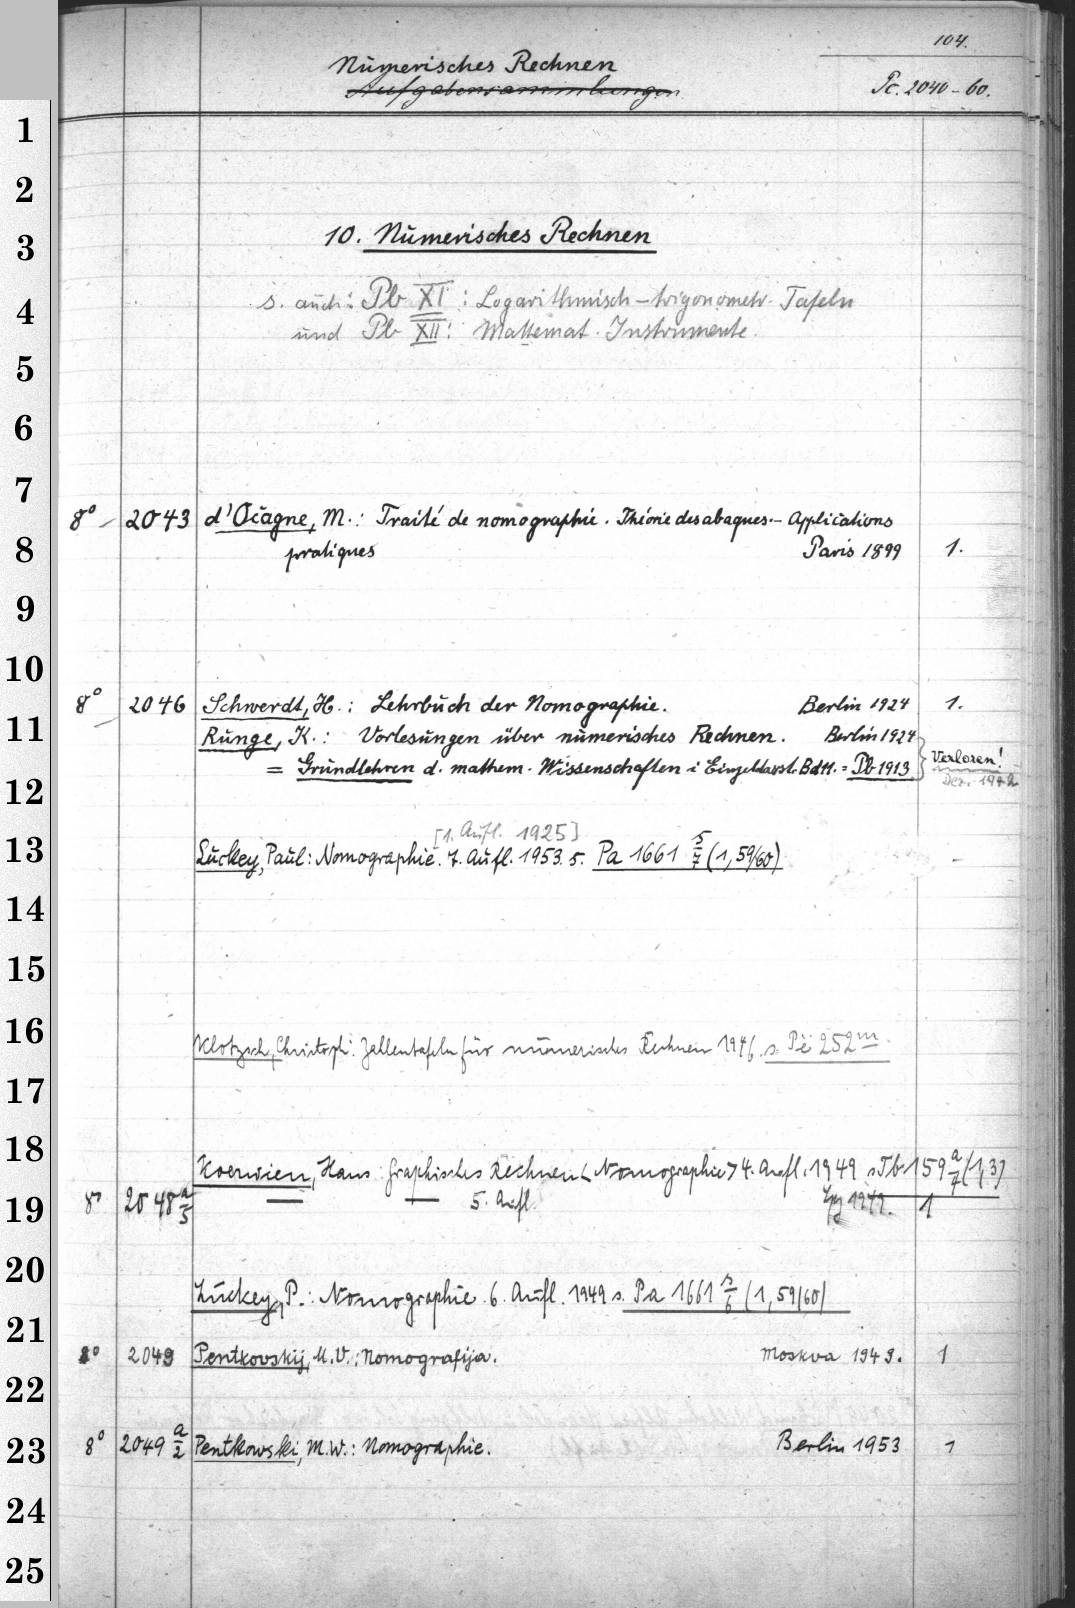 104.
Numerisches Rechnen
Aufgabensammlungen
Pc. 2040-60.
1
2
3
10. Numerisches Rechnen
4
s. auch: Pb XI: Logarithmisch-trigonometr. Tafeln
und Pb XII: Mathemat. Instrumente.
5
6
7
8° 2043 d'Ocagne, M.: Traité de nomographie. Théorie des abaques.- Applications
8
pratiques Paris 1899 1.
9
10
8° 2046 Schwerdt, H.: Lehrbuch der Nomographie. Berlin 1924 1.
11
Runge, K.: Vorlesungen über numerisches Rechnen. Berlin 1924
= Grundlehren d. mathem. Wissenschaften i Einzeldarst. Bd 11. = Pb 1913 } Verloren!
Dez. 1942
12
[1. Aufl. 1925]
13
Luckey, Paul: Nomographie. 7. Aufl. 1953. s. Pa 1661 s/7 (1,59/60)
14
15
16
Klotzsch, Christoph: Zahlentafeln für numerisches Rechnen 1946. s. Pe 252m.
17
18
Koerwien, Hans: Graphisches Rechnen < Nomographie > 4. Aufl. 1949 s. Tb 159 a/7 (1,3)
19
8° 2048 a/5 — — 5. Aufl. Lpg 1949. 1
20
Luckey, P.: Nomographie. 6. Aufl. 1949 s. Pa 1661 s/6 (1,59/60)
21
8° 2049 Pentkovskij, M.V.: Nomografija. Moskva 1949. 1
22
23
8° 2049 a/2 Pentkowski, M.W.: Nomographie. Berlin 1953 1
24
25